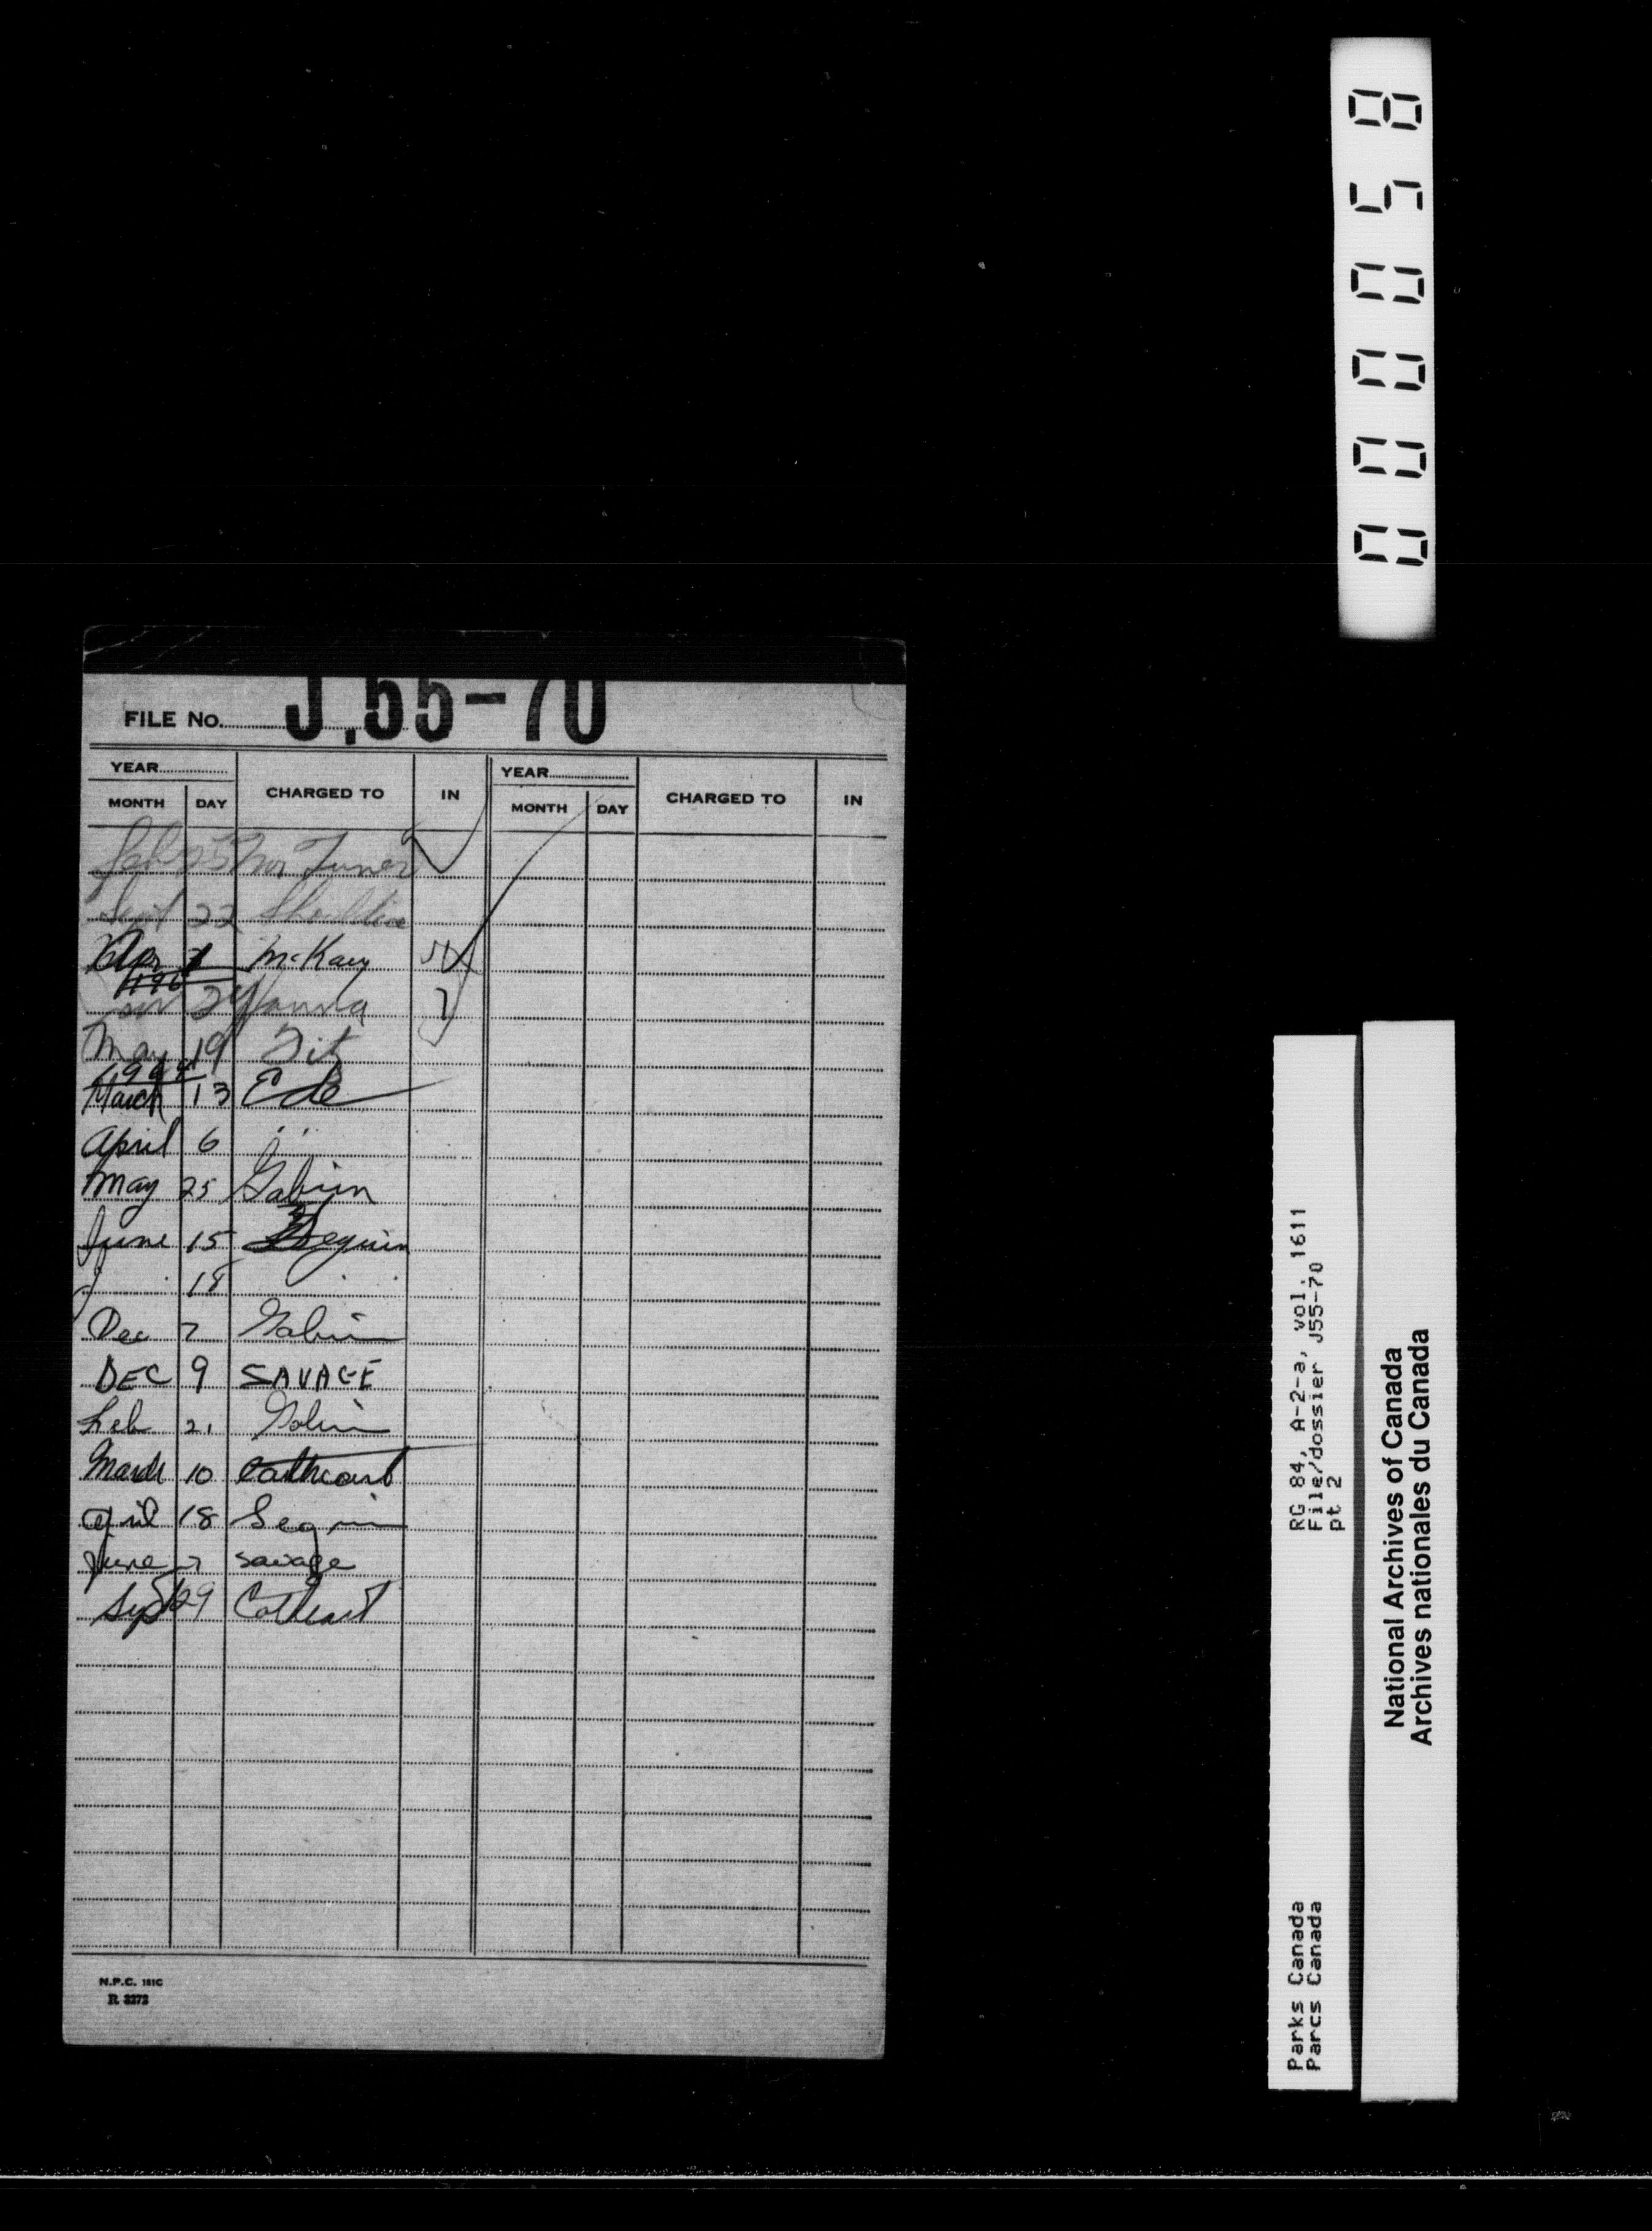 000058
J.55-70
FILE No.
YEAR MONTH DAY CHARGED TO IN YEAR MONTH DAY CHARGED TO IN
Feb 25 Mr Turner
Sept 22
Apr 1 McKay
24
May 19
March 13 Ede
April 6 " "
May 25 Gabrin
June 15 Seguin
18
Dec 7 Gabrin
DEC 9 SAVAGE
Feb 21 Gabrin
March 10 Cathcart
April 18 Seguin
June 7 Savage
Sept 29 Cathcart
N.P.C. 181C
R. 3272
RG 84, A-2-a, vol. 1611
File/dossier J55-70
pt 2
Parks Canada
Parcs Canada
National Archives of Canada
Archives nationales du Canada